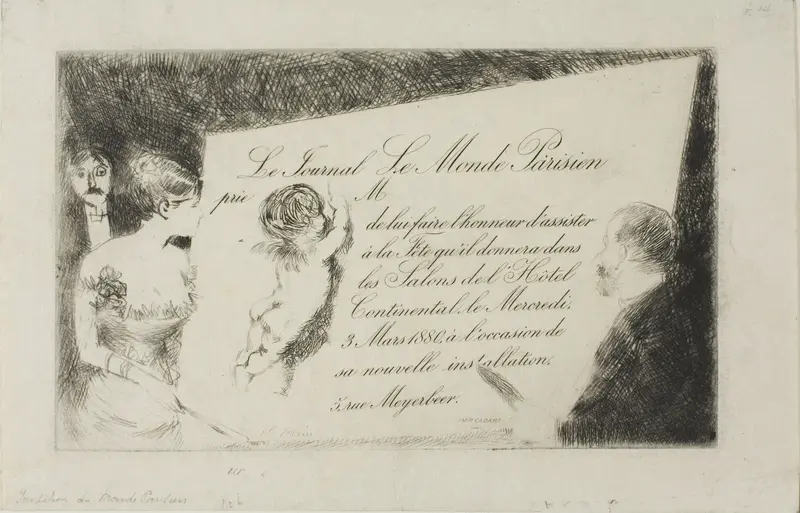 Le Journal Le Monde Parisien
prie M
de lui faire l'honneur d'assister
à la Fête qu'il donnera dans
les Salons de l'Hôtel
Continental, le Mercredi,
3 Mars 1880, à l'occasion de
sa nouvelle installation,
3, rue Meyerbeer.
IMP. CADART
Invitation du Monde Parisien